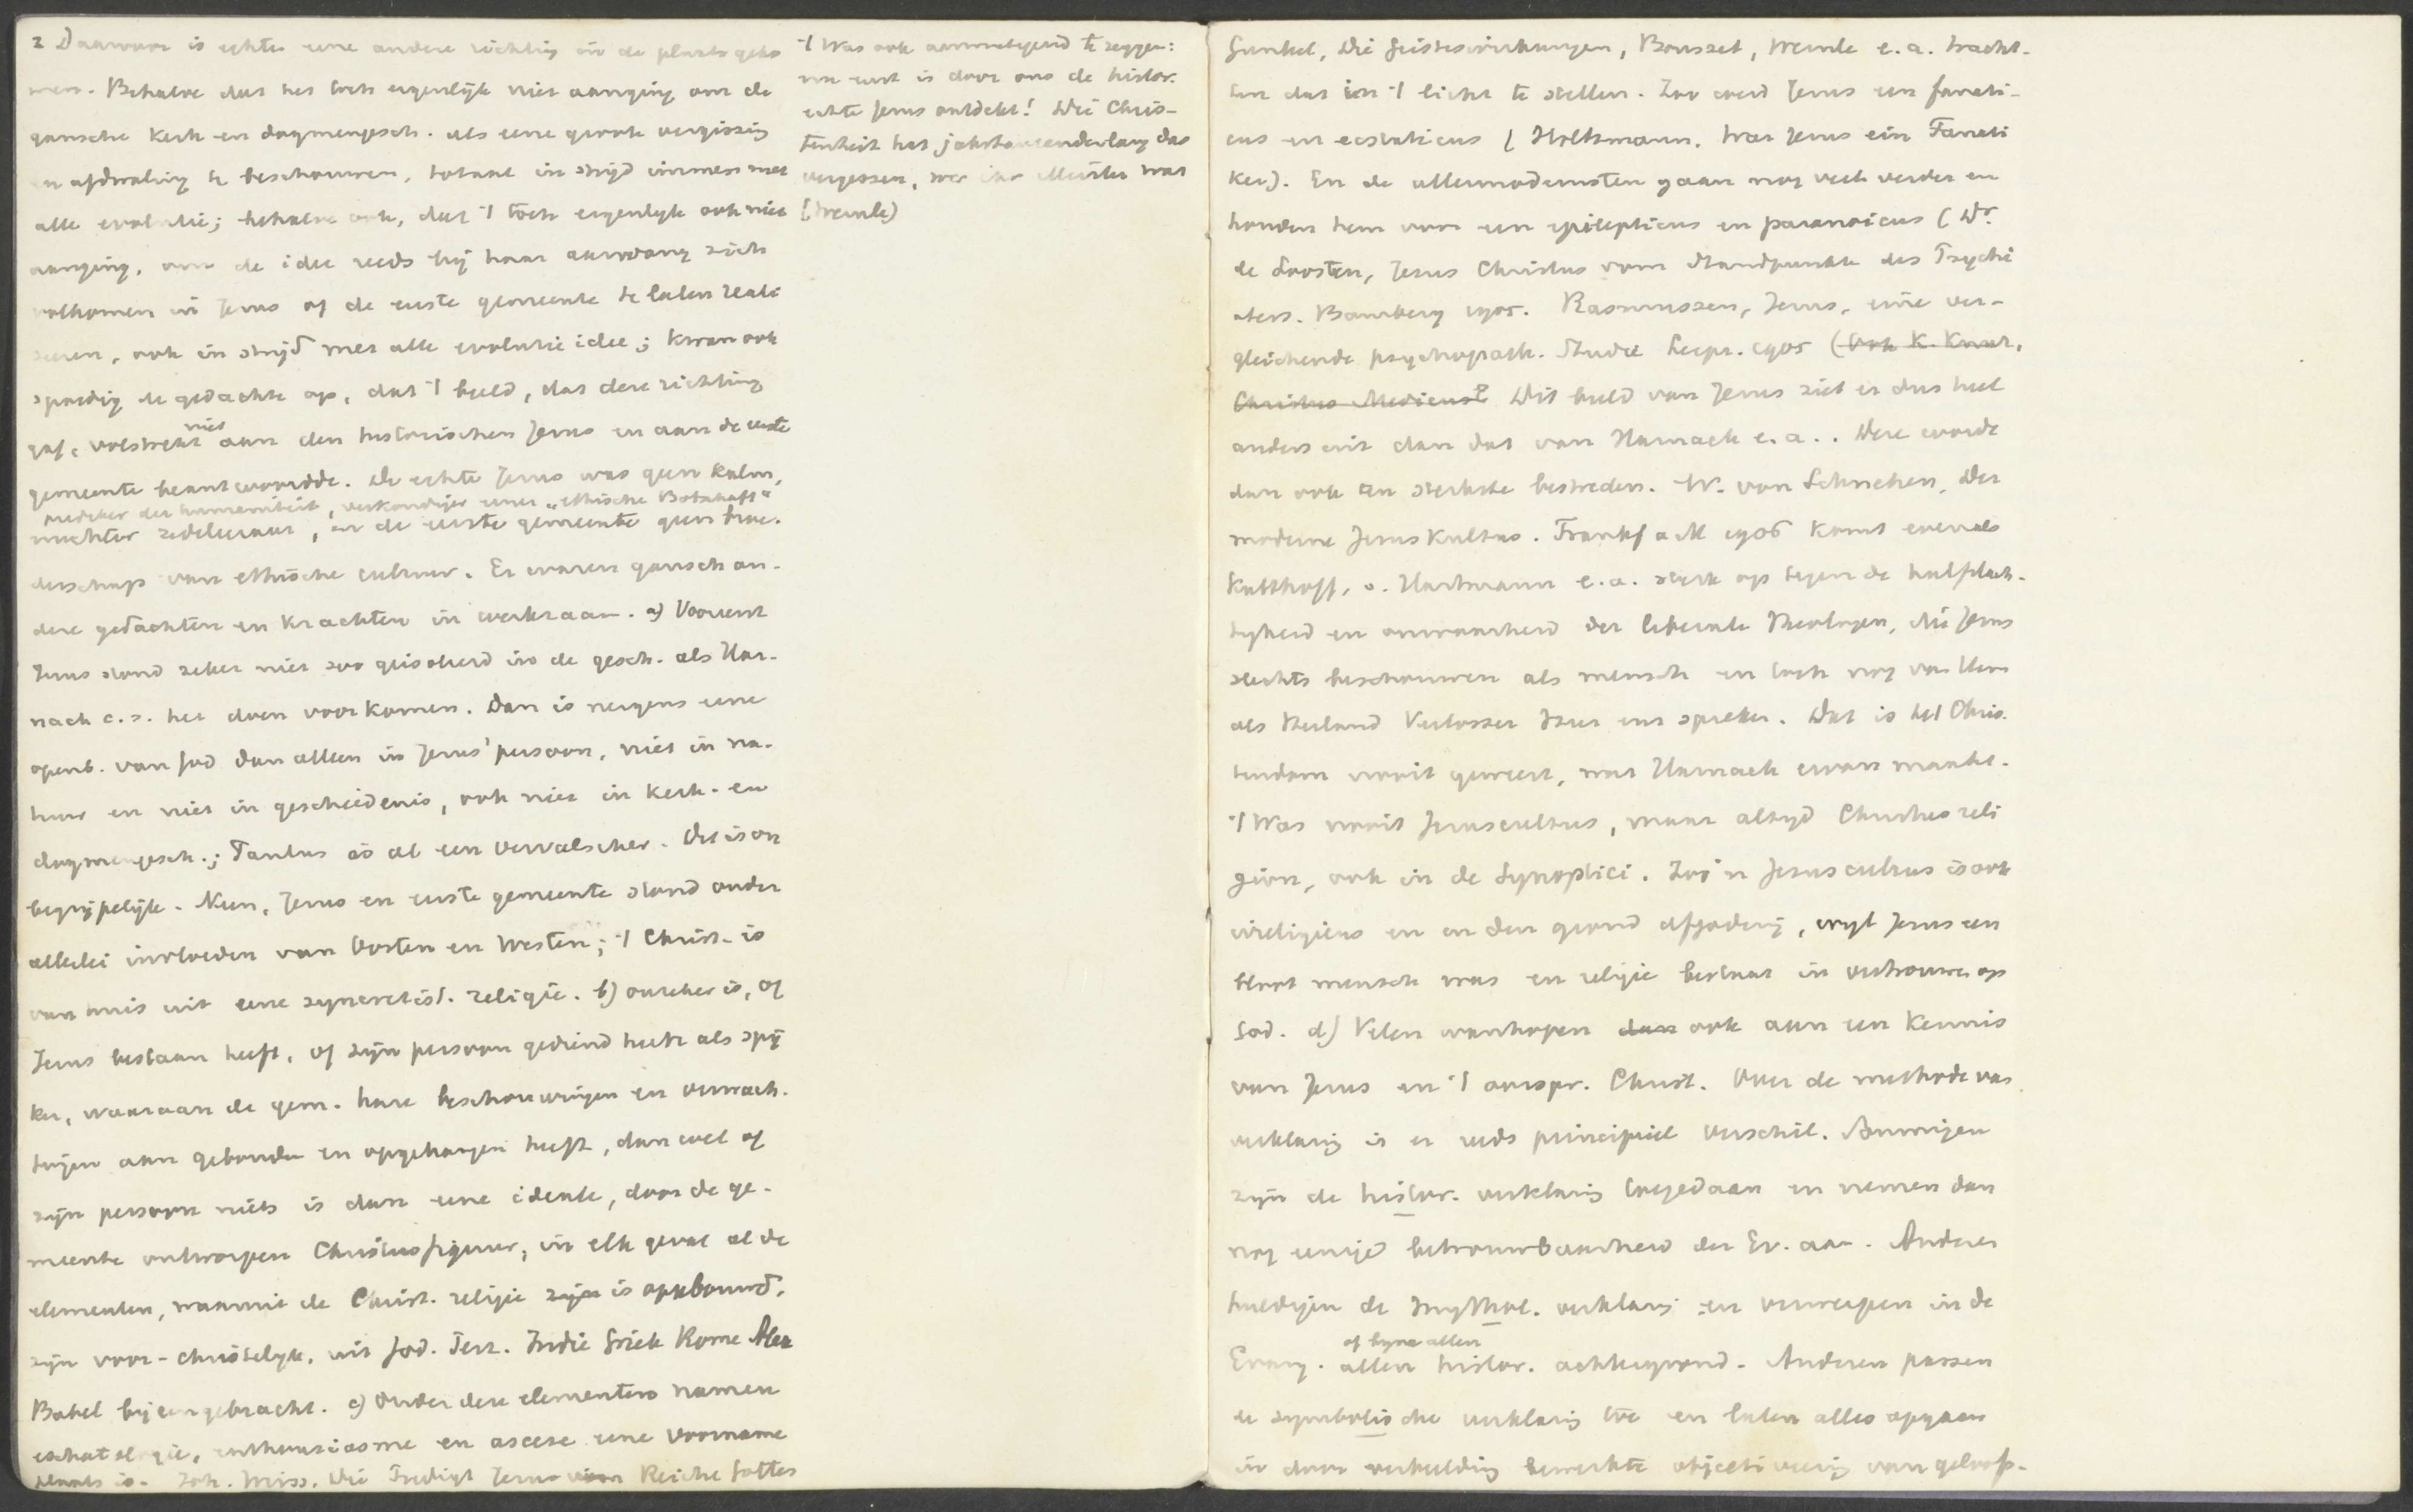 2 Daarvoor is echter eene andere richting in de plaats geko
men. Behalve dat het toch eigenlijk niet aanging om de
gansche kerk en dogmengesch. als eene groote vergissing
en afdwaling te beschouwen, totaal in strijd immers met
alle evolutie; behalve ook, dat 't toch eigenlijk ook niet
aanging, om de idee reeds bij haar aanvang zich
volkomen in Jezus of de eerste gemeente te laten reali
seeren, ook in strijd met alle evolutie idee; kwam ook
spoedig de gedachte op, dat 't beeld, dat deze richting
gaf, volstrekt niet aan den historischen Jezus en aan de eerste
gemeente beantwoordde. De echte Jezus was geen kalm,
prediker der humaniteit, verkondiger eener „ethische Botschaft"
nuchter zedeleeraar, en de eerste gemeente geen broe-
derschap van ethische cultuur. Er waren gansch an-
dere gedachten en krachten in werkzaam. a) Vooreerst
Jezus stond zeker niet zoo geisoleerd in de gesch. als Har-
nack c.s. het doen voorkomen. Dan is nergens eene
openb. van God dan alleen in Jezus' persoon, niet in na-
tuur en niet in geschiedenis, ook niet in kerk- en
dogmengesch.; Paulus is al een vervalscher. Dit is on
begrijpelijk. Neen, Jezus en eerste gemeente stond onder
allerlei invloeden van Oosten en Westen; 't Christ. is
van huis uit eene syncretist. religie. b) onzeker is, of
Jezus bestaan heeft, of zijn persoon gediend heeft als spij
ker, waaraan de gem. hare beschouwingen en verwach-
tingen aan gebonden en opgehangen heeft, dan wel of
zijn persoon niets is dan eene ideale, door de ge-
meente ontworpen Christusfiguur; in elk geval al de
elementen, waaruit de Christ. religie zijn is opgebouwd,
zijn voor-christelijk, uit Jod. Perz. Indie Griek Rome Alex
Babel bijeengebracht. c) Onder deze elementen namen
eschatologie, enthousiasme en ascese eene voorname
plaats in. Joh. Weiss, Die Predigt Jesu vom Reiche Gottes
't Was ook aanmatigend te zeggen:
nu eerst is door ons de histor.
echte Jezus ontdekt! Die Chris-
tenheit hat jahrtausendelang das
vergessen, wer ihr Meister war
(Weinle)
Gunkel, Die Geisteswirkungen, Bousset, Weinle e.a. tracht-
ten dat in 't licht te stellen. Zoo werd Jezus een fanati-
cus en ecstaticus (Holtzmann, War Jesus ein Fanati
ker). En de allermodernsten gaan nog veel verder en
houden hem voor een epilepticus en paranoicus (Dr.
de Loosten, Jesus Christus vom Standpunkte des Psychi
aters. Bamberg 1905. Rasmussen, Jesus, eine ver-
gleichende psychopath. Studie Leipz. 1905 (Ook K. Knur,
Christus Medicus? Dit beeld van Jezus ziet er dus heel
anders uit dan dat van Harnack e.a.. Deze wordt
dan ook ten sterkste bestreden. W. von Schnehen, Der
moderne Jesuskultus. Frankf a M 1906 komt evenals
Kalthoff, v. Hartmann e.a. sterk op tegen de halfslach-
tigheid en onwaarheid der liberale theologen, die Jezus
slechts beschouwen als mensch en toch nog van Hem
als Heiland Verlosser Heer enz spreken. Dat is het Chris-
tendom nooit geweest, wat Harnack ervan maakt.
't Was nooit Jezuscultus, maar altijd Christusreli
gion, ook in de Synoptici. Zoo'n Jezuscultus is ook
irreligieus en in den grond afgoderij, wijl Jezus een
bloot mensch was en religie bestaat in vertrouwen op
God. d) Velen wanhopen dan ook aan een kennis
van Jezus en 't oorspr. Christ. Over de methode van
verklaring is er reeds principieel verschil. Sommigen
zijn de histor. verklaring toegedaan en nemen dan
nog eenige betrouwbaarheid der Ev. aan. Anderen
huldigen de mythol. verklaring en verwerpen in de
Evang. allen of bijna allen histor. achtergrond. Anderen passen
de symbolische verklaring toe en laten alles opgaan
in door verbeelding bewerkte objectiveering van geloofs-